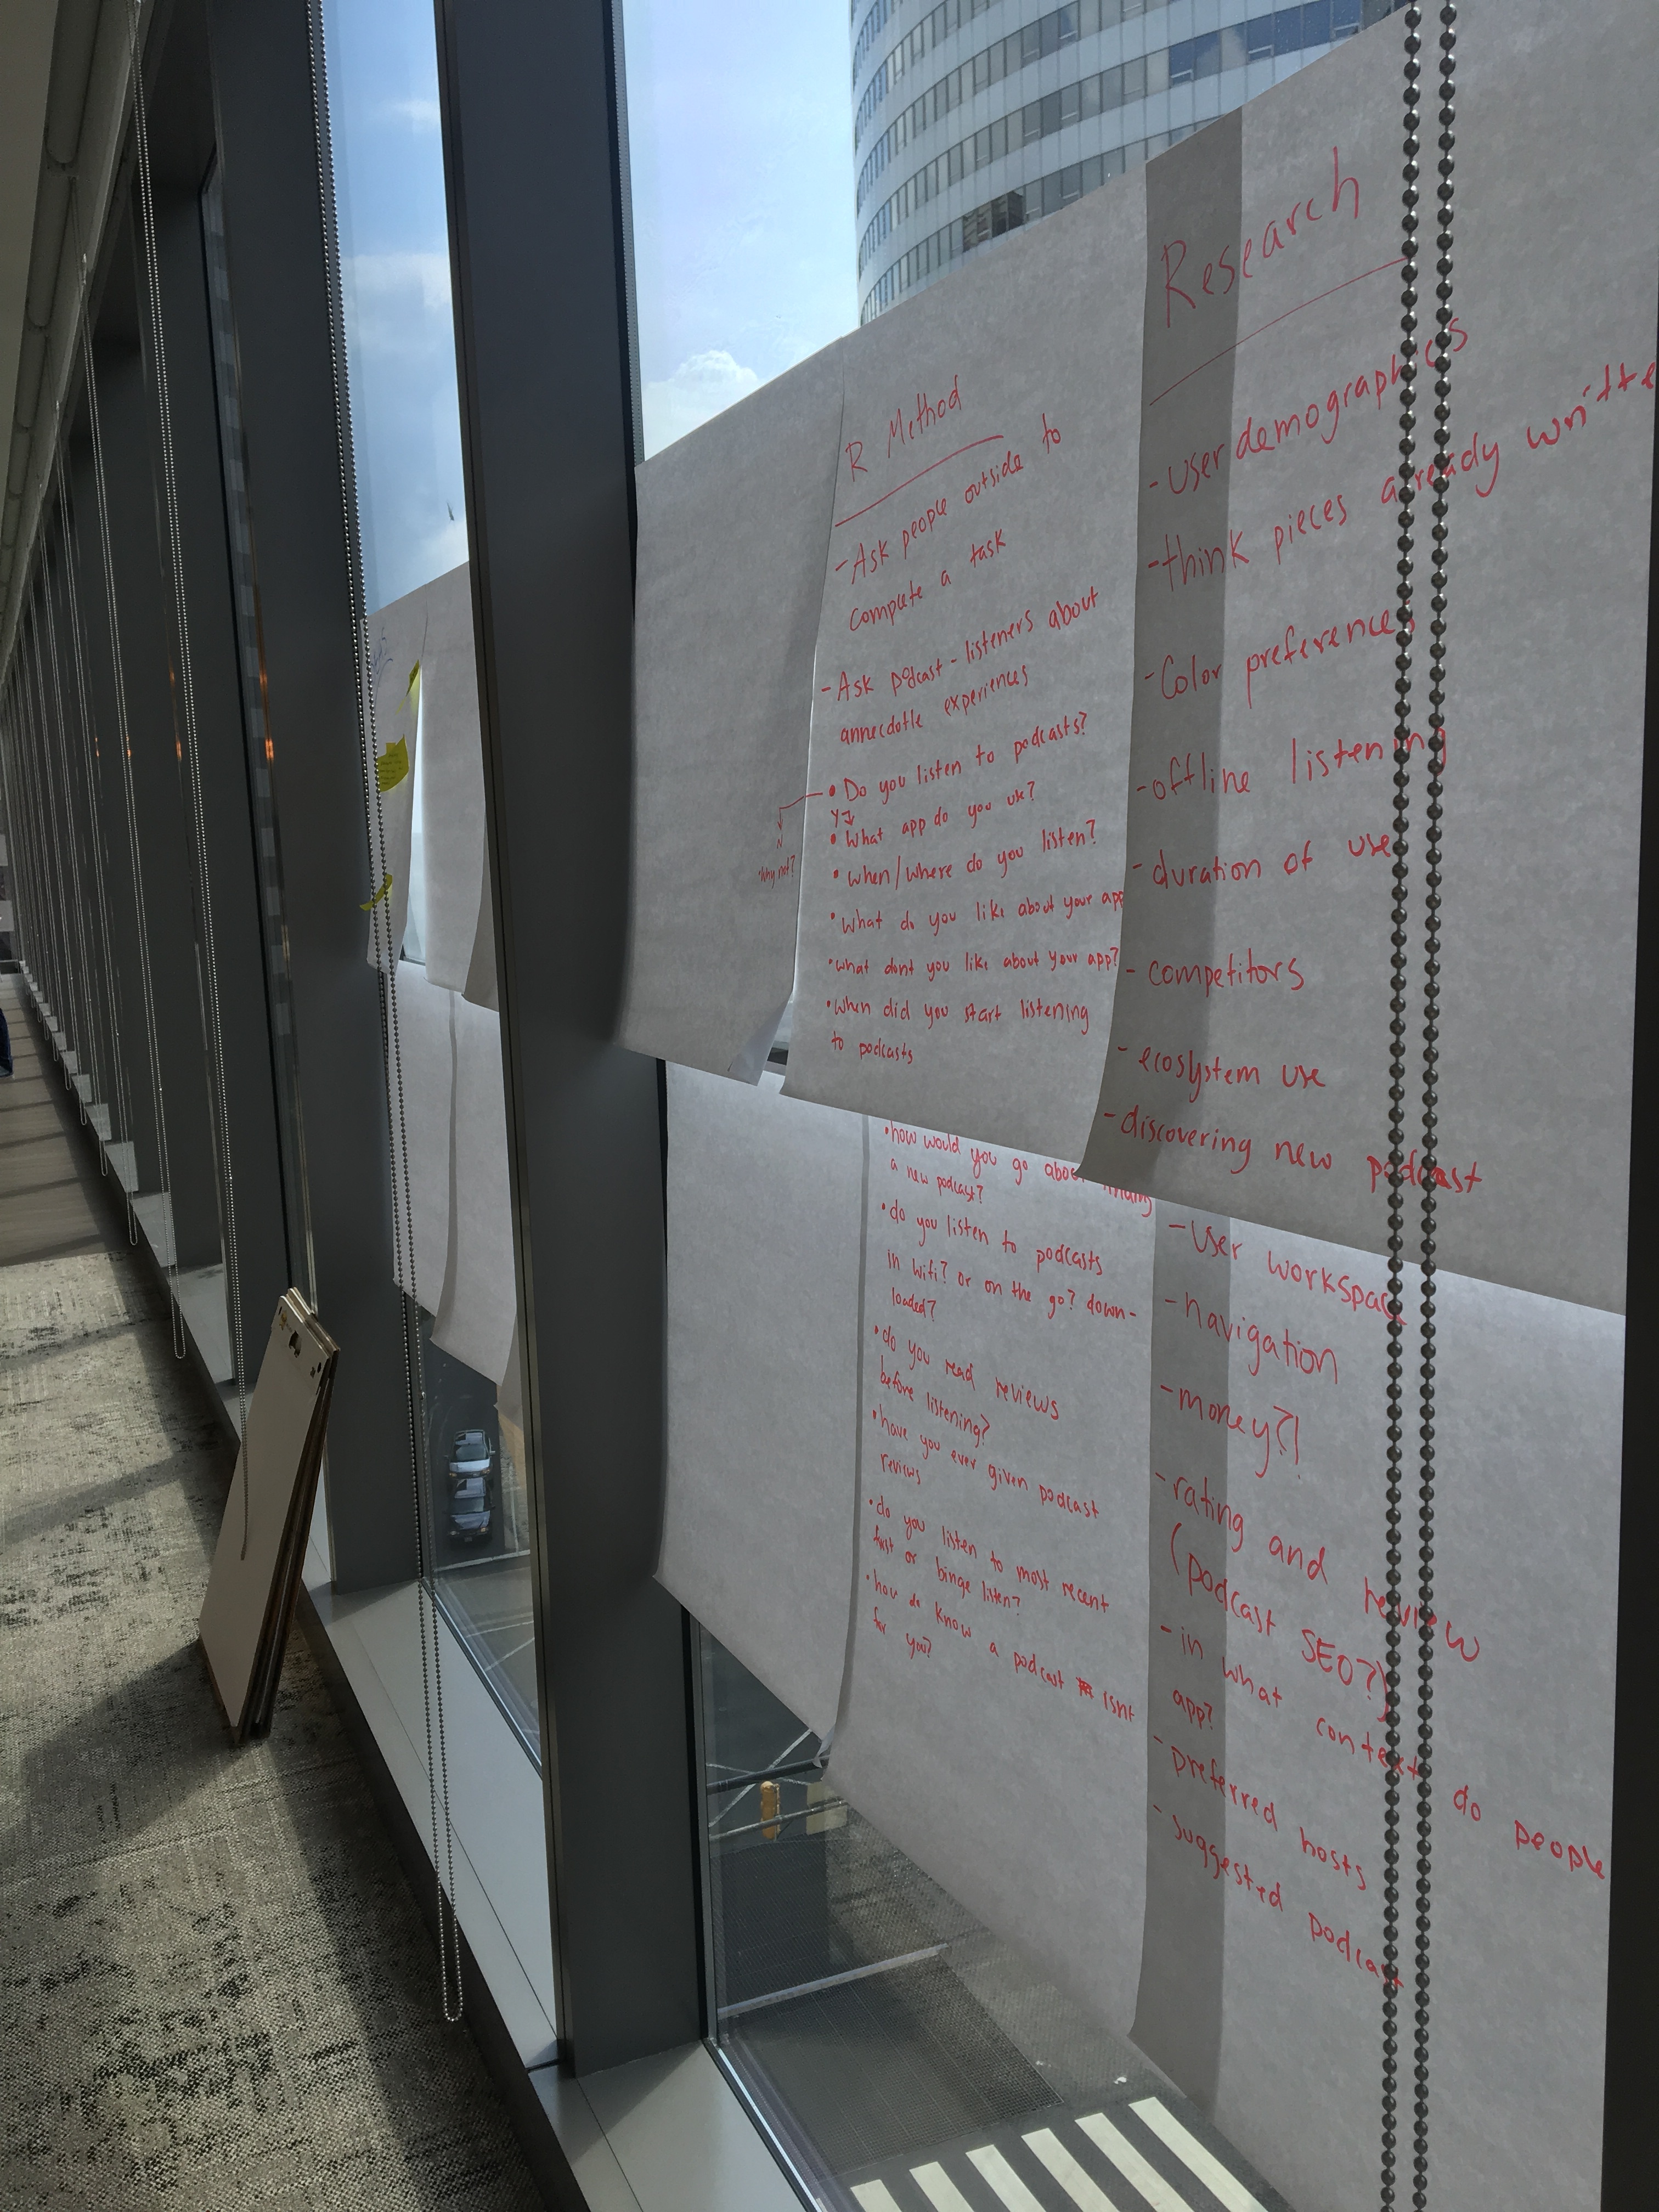 R Method
- Ask people outside to
complete a task
- Ask podcast - listeners about
annecdotle experiences
• Do you listen to podcasts?
Y
N
• Why not?
• What app do you use?
• when/where do you listen?
• What do you like about your app
• what dont you like about your app?
• When did you start listening
to podcasts
• how would you go about finding
a new podcast?
• do you listen to podcasts
in wifi? or on the go? down-
loaded?
• do you read reviews
before listening?
• have you ever given podcast
reviews
• do you listen to most recent
first or binge listen?
• how do know a podcast isnt
for you?
Research
- user demographics
- think pieces already written
- Color preferences
- offline listening
- duration of use
- competitors
- ecosystem use
- discovering new podcast
- User workspace
- navigation
- money?!
- rating and review
(podcast SEO?)
- in what context do people
app?
- preferred hosts
- suggested podcast